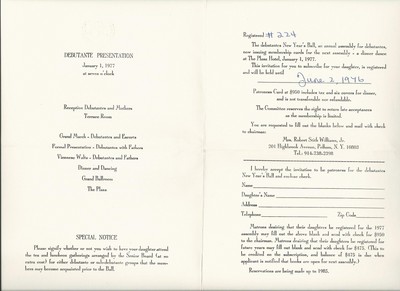 DEBUTANTE PRESENTATION
January 1, 1977
at seven o'clock
Reception Debutantes and Mothers
Terrace Room
Grand March - Debutantes and Escorts
Formal Presentation - Debutantes with Fathers
Viennese Waltz - Debutantes and Fathers
Dinner and Dancing
Grand Ballroom
The Plaza
SPECIAL NOTICE
Please signify whether or not you wish to have your daughter attend
the tea and luncheon gatherings arranged by the Senior Board (at no
extra cost) for either debutantes or sub-debutante groups that the members
may become acquainted prior to the Ball.
Registered # 224
The debutantes New Year's Ball, an annual assembly for debutantes,
now issuing membership cards for the next assembly at a dinner dance
at The Plaza Hotel, January 1, 1977.
This invitation for you to subscribe for your daughter, is registered
and will be held until
June 2, 1976
Patroness Card at $950 includes tax and six covers for dinner,
and is not transferable nor refundable.
The Committee reserves the right to return late acceptances
as the membership is limited.
You are requested to fill out the blanks below and mail with check
to chairman:
Mrs. Robert Stith Williams, Jr.
261 Highbrook Avenue, Pelham, N. Y. 10803
Tel: 914-738-2298
I hereby accept the invitation to be patroness for the debutantes
New Year's Ball and enclose check.
Name
Daughter's Name
Address
Telephone Zip Code
Matrons desiring that their daughters be registered for the 1977
assembly may fill out the above blank and send with check for $950
to the chairman. Matrons desiring that their daughters be registered for
future years may fill out blank and send with check for $475. (This to
be credited on the subscription, and balance of $475 is due when
applicant is notified that books are open for next assembly.)
Reservations are being made up to 1985.